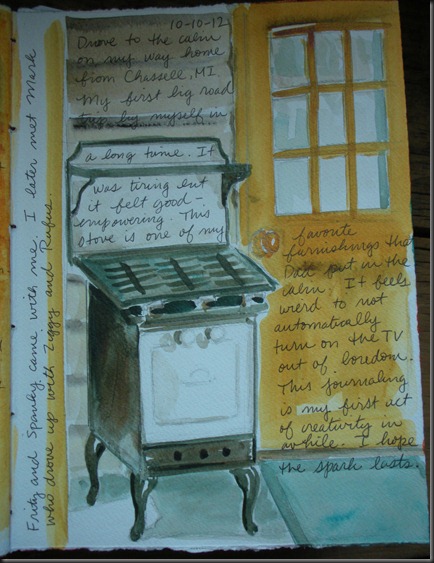 10-10-12
Drove to the cabin
on my way home
from Chassell, MI.
My first big road
trip by myself in
a long time. It
was tiring but
it felt good -
empowering. This
stove is one of my
favorite
furnishings that
Dad put in the
cabin. It feels
weird to not
automatically
turn on the TV
out of boredom.
This journaling
is my first act
of creativity in
awhile. I hope
the spark lasts.
and Spanky came with me. I later met Mark
who drove up with Ziggy and Rufus.